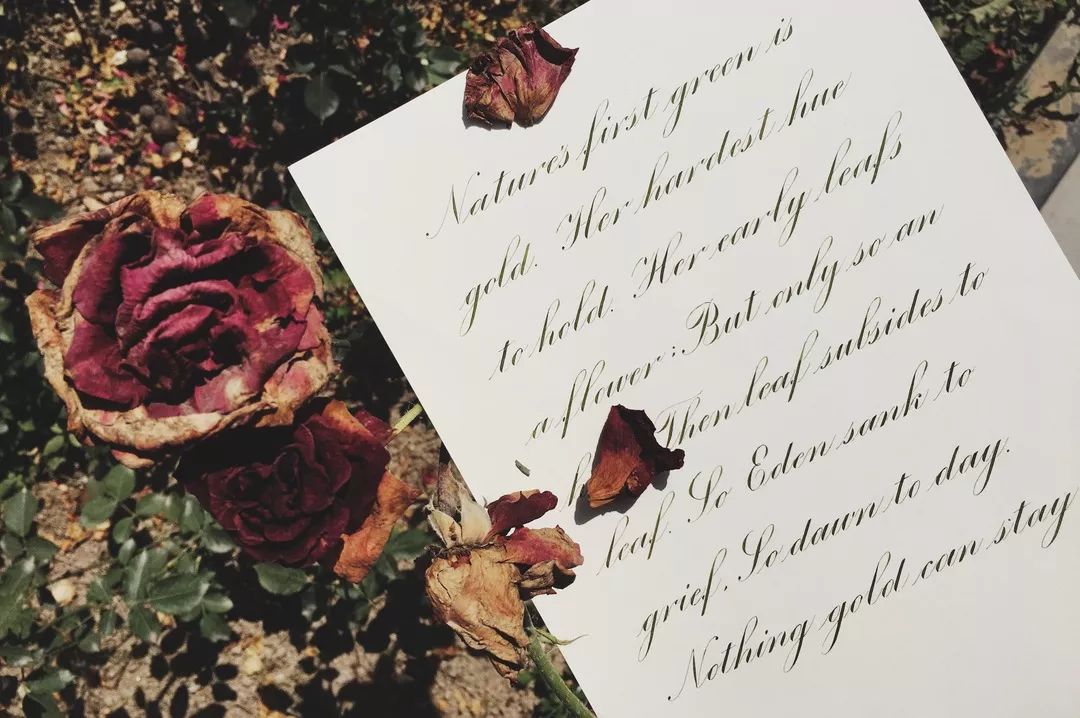 Nature's first green is
gold. Her hardest hue
to hold. Her early leafs
a flower; But only so an
h Then leaf subsides to
leaf. So Eden sank to
grief. So dawn to day.
Nothing gold can stay